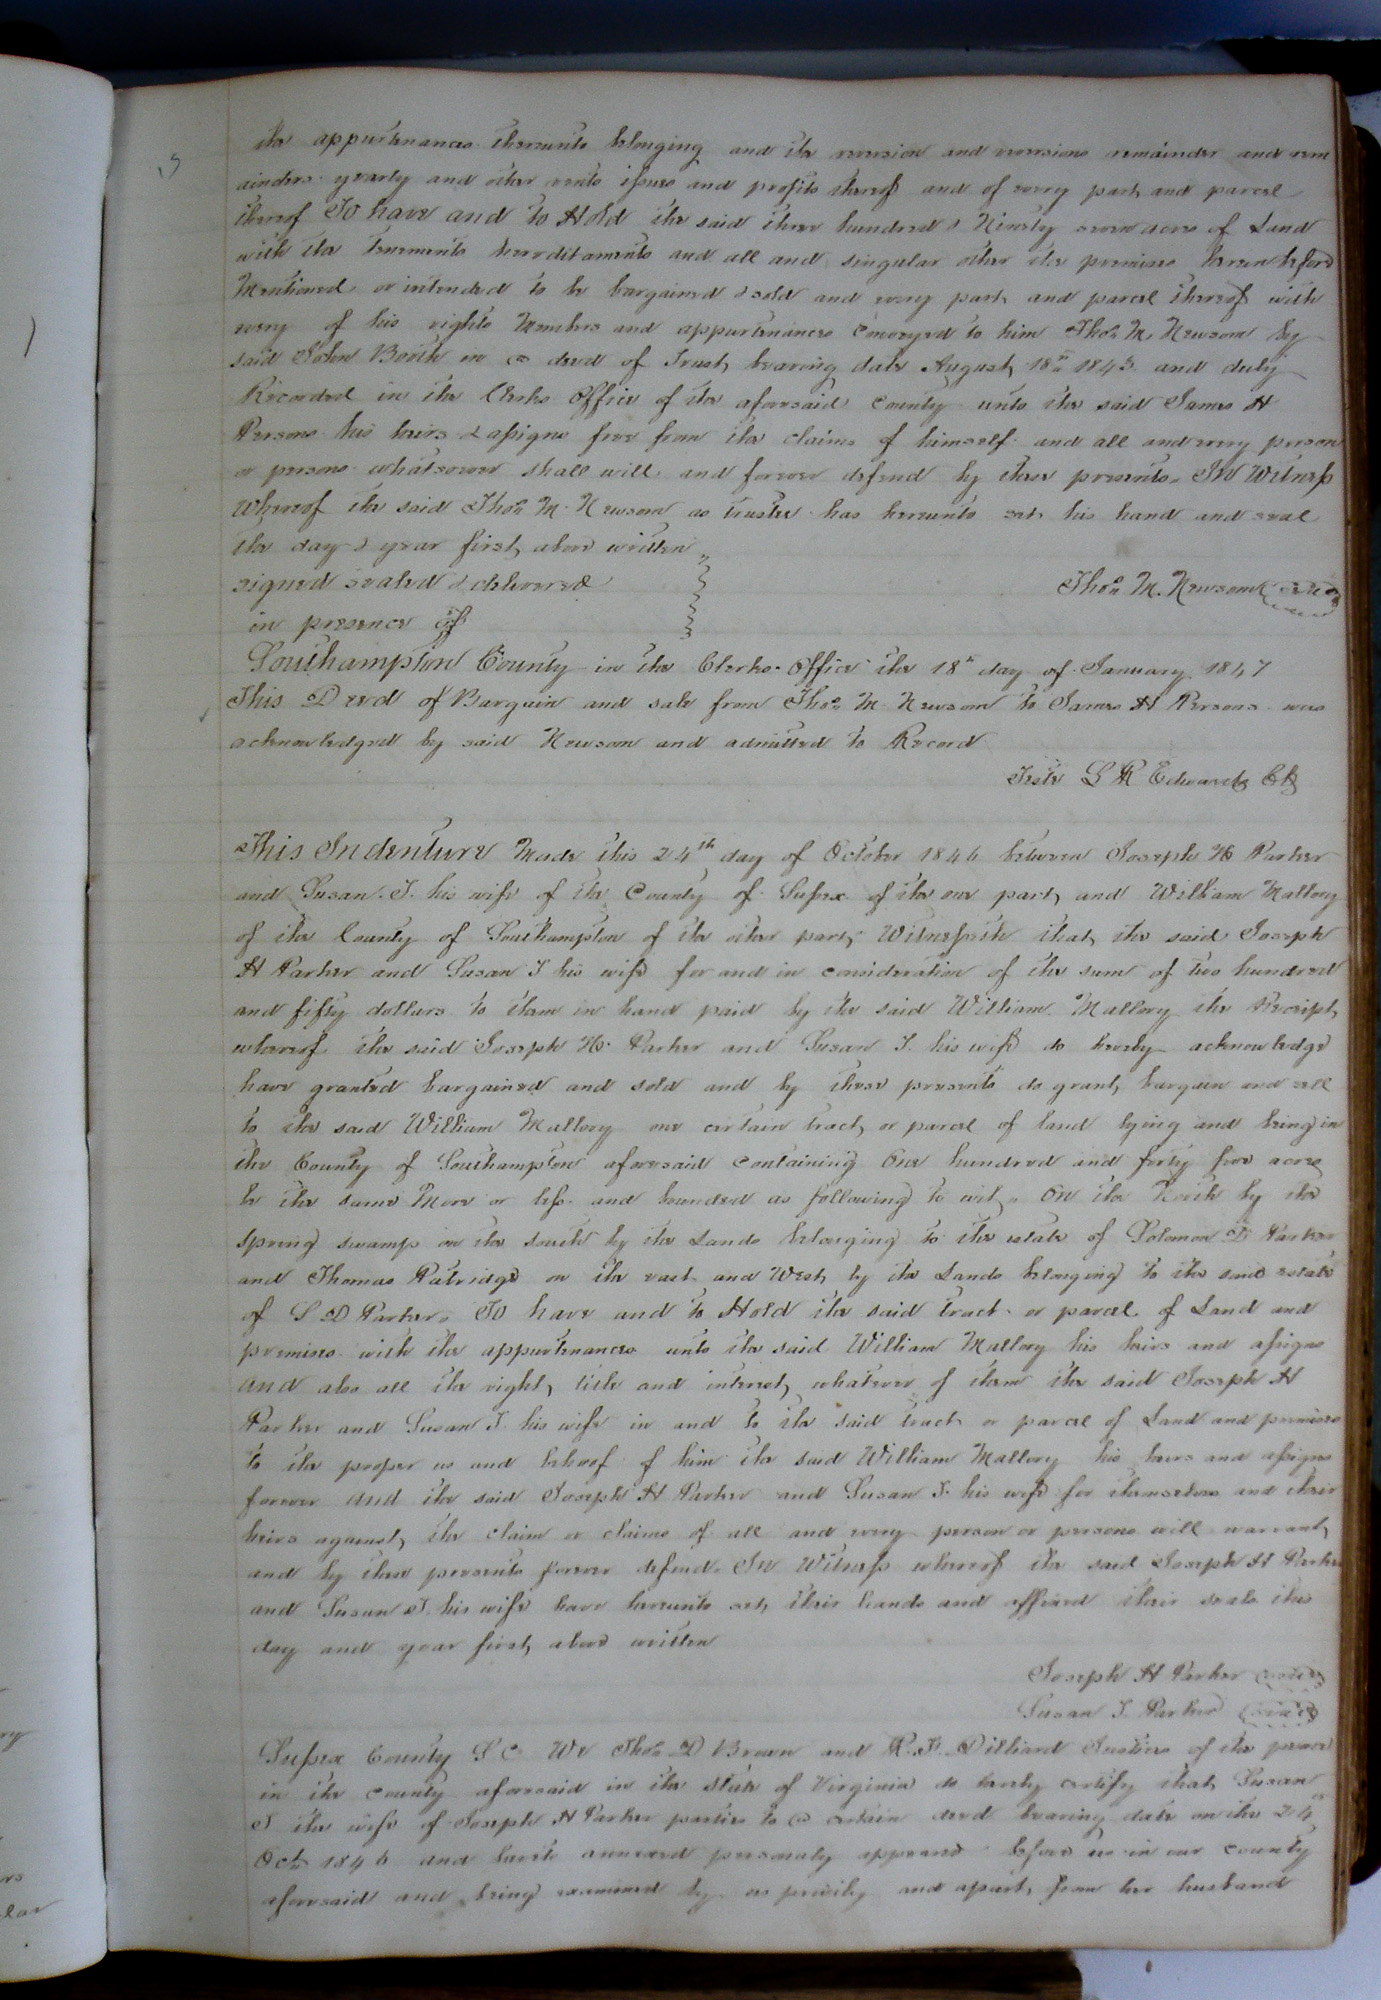 the appurtenances thereunto belonging and the reversion and reversions remainder and rem
ainders yearly and other rents issues and profits thereof and of every part and parcel
thereof To have and to Hold the said three hundred & Ninety seven acres of Land
with the tenements hereditaments and all and singular other the premises herein before
Mentioned or intended to be bargained & sold and every part and parcel thereof with
every of his rights Members and appurtenances Conveyed to him Thos M. Newsom by
said John Booth in a deed of Trust bearing date August 18th 1843 and duly
Recorded in the Clerks Office of the aforesaid County unto the said James H
Persons his heirs & assigns free from the claims of himself and all and every person
or persons whatsoever shall will and forever defend by these presents. In Witness
Whereof the said Thos M. Newsom as trustee has hereunto set his hand and seal
the day & year first above written
signed sealed & delivered Thos M. Newsom (seal)
in presence of
Southampton County in the Clerks Office the 18th day of January 1847
This Deed of Bargain and sale from Thos M. Newsom to James H Persons was
acknowledged by said Newsom and admitted to Record
Teste L R Edwards Clk
This Indenture Made this 24th day of October 1846 between Joseph H Parker
and Susan T. his wife of the County of Sussex of the one part and William Mallory
of the County of Southampton of the other part Witnesseth that the said Joseph
H Parker and Susan T his wife for and in consideration of the sum of two hundred
and fifty dollars to them in hand paid by the said William Mallory the Receipt
whereof the said Joseph H. Parker and Susan T. his wife do hereby acknowledge
have granted bargained and sold and by these presents do grant bargain and sell
to the said William Mallory one certain tract or parcel of land lying and being in
the County of Southampton aforesaid containing One hundred and forty five acres
be the same More or less and bounded as following to wit, On the North by the
spring swamp on the south by the Lands belonging to the estate of Solomon D Parker
and Thomas Patridge on the east and West by the Lands belonging to the said estate
of S D Parker. To have and to Hold the said tract or parcel of Land and
premises with the appurtenances unto the said William Mallory his heirs and assigns
and also all the right, title and interest whatever of them the said Joseph H
Parker and Susan T. his wife in and to the said tract or parcel of Land and premises
to the proper us and behoof of him the said William Mallory his heirs and assigns
forever and the said Joseph H Parker and Susan T. his wife for themselves and their
heirs against the claim or claims of all and every person or persons will warrant
and by these presents forever defend. In Witness whereof the said Joseph H Parker
and Susan T. his wife have hereunto set their hands and affixed their seals this
day and year first above written
Joseph H Parker (seal)
Susan T. Parker (seal)
Sussex County S C We Thos D Brown and R. F. Dilliard Justices of the peace
in the county aforesaid in the State of Virginia do hereby certify that Susan
T the wife of Joseph H Parker parties to a certain deed bearing date on the 24th
Oct 1846 and hereto annexed personaly appeared before us in our county
aforesaid and being examined by us privily and apart from her husband